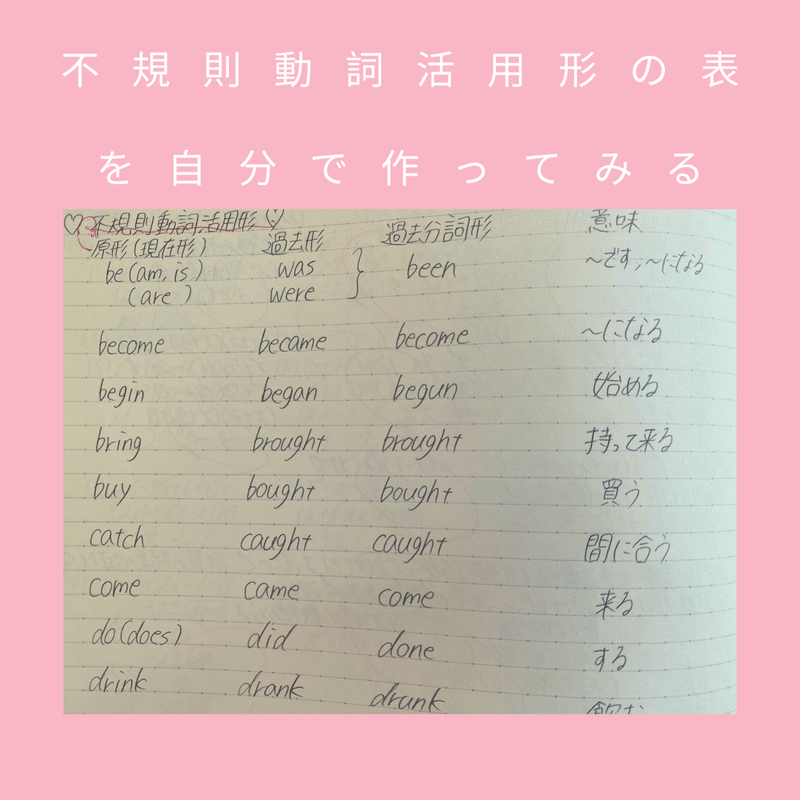 不規則動詞活用形の表
を自分で作ってみる
♡不規則動詞活用形♡
原形(現在形) 過去形 過去分詞形 意味
be(am, is) was } been ~です;~になる
(are) were
become became become ~になる
begin began begun 始める
bring brought brought 持って来る
buy bought bought 買う
catch caught caught 間に合う
come came come 来る
do(does) did done する
drink drank drunk 飲む